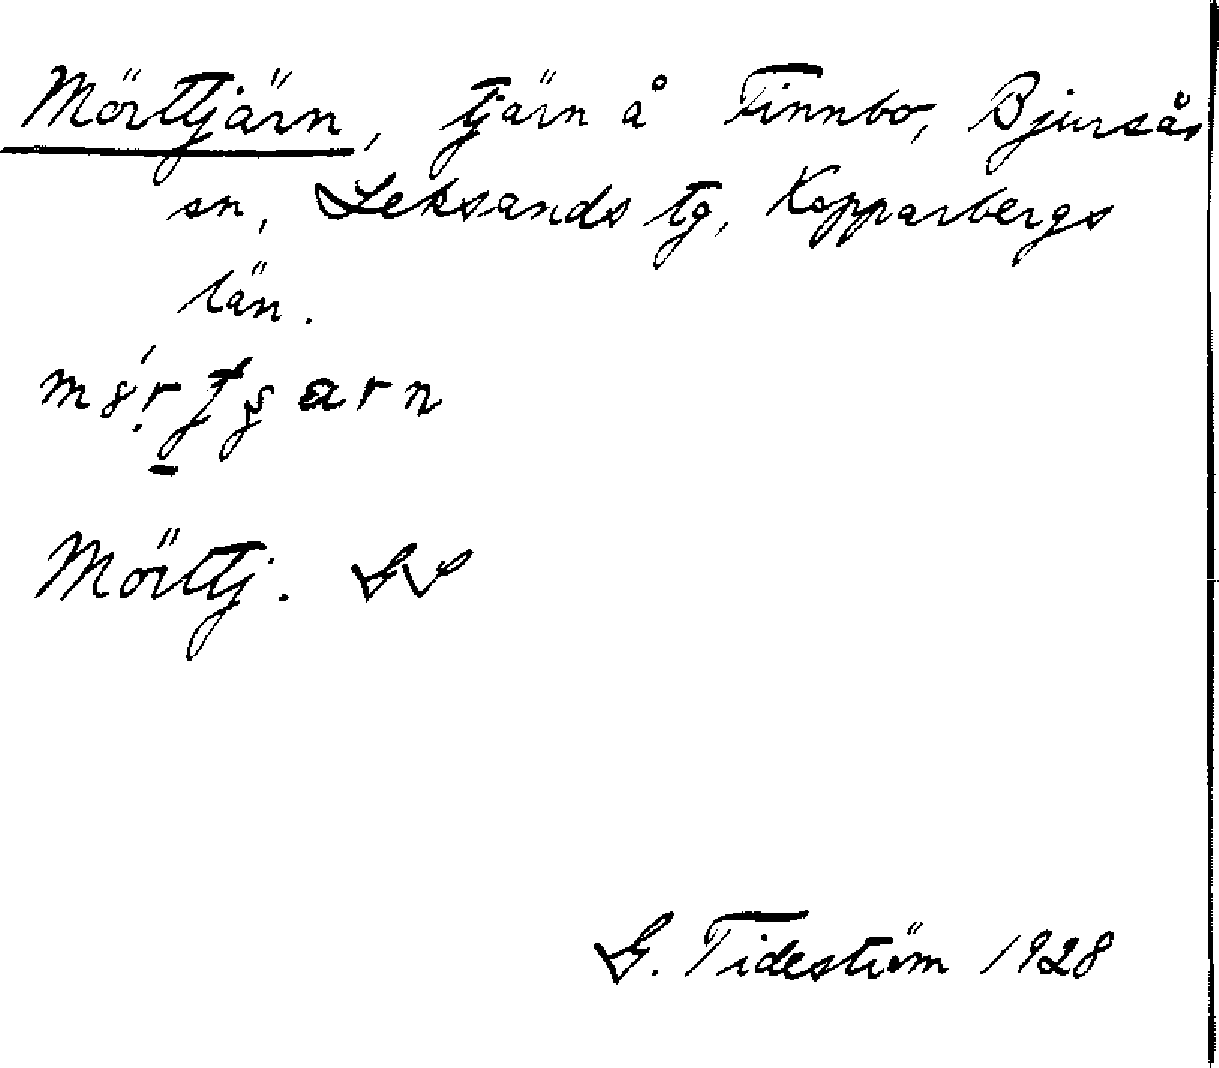 Mörttjärn, tjärn å Finnbo, Bjursås
sn, Leksands tg, Kopparbergs
län.
Mörttj. GS
G. Tideström 1928